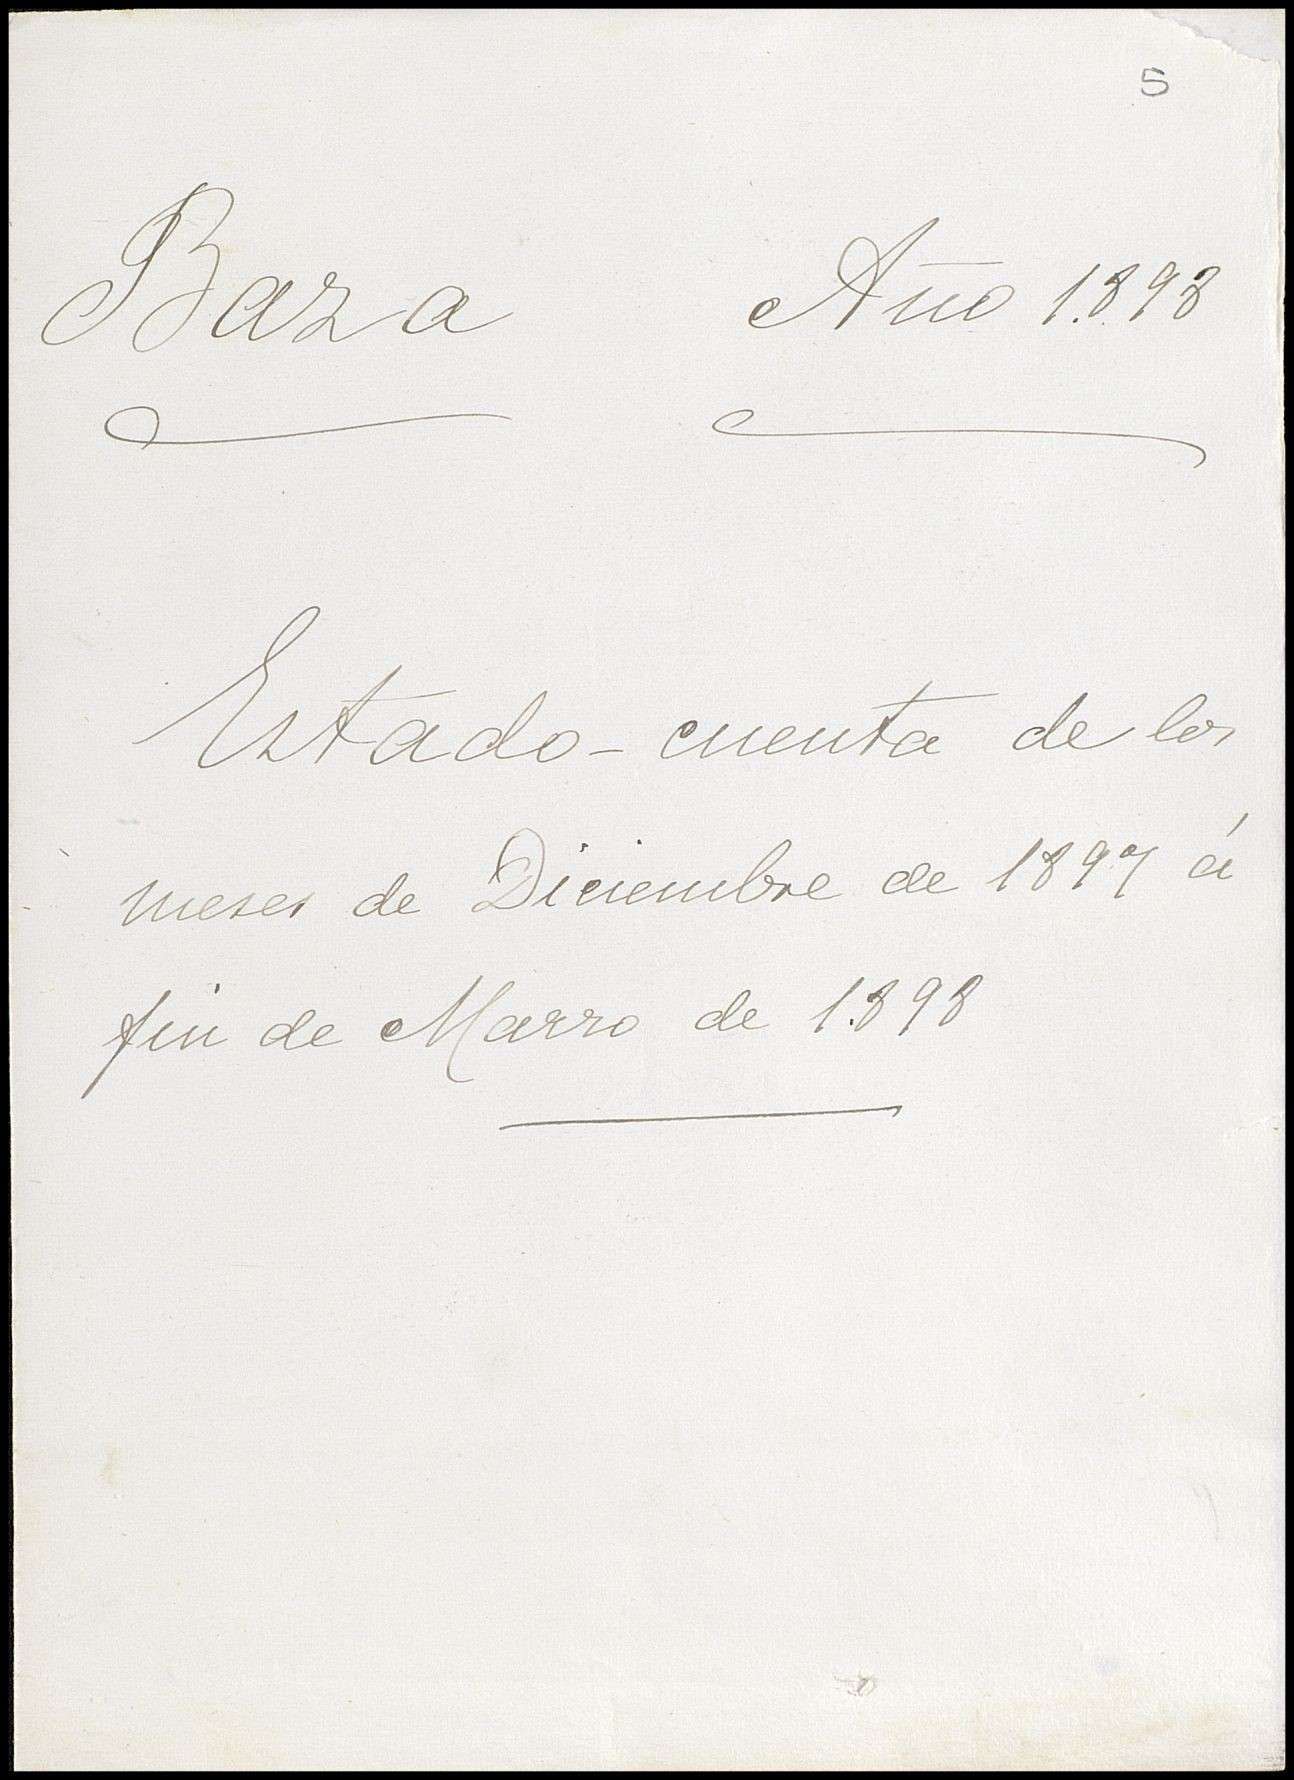 5
Baza Año 1.898
Estado-cuenta de los
meses de Diciembre de 1897 á
fin de Marzo de 1.898